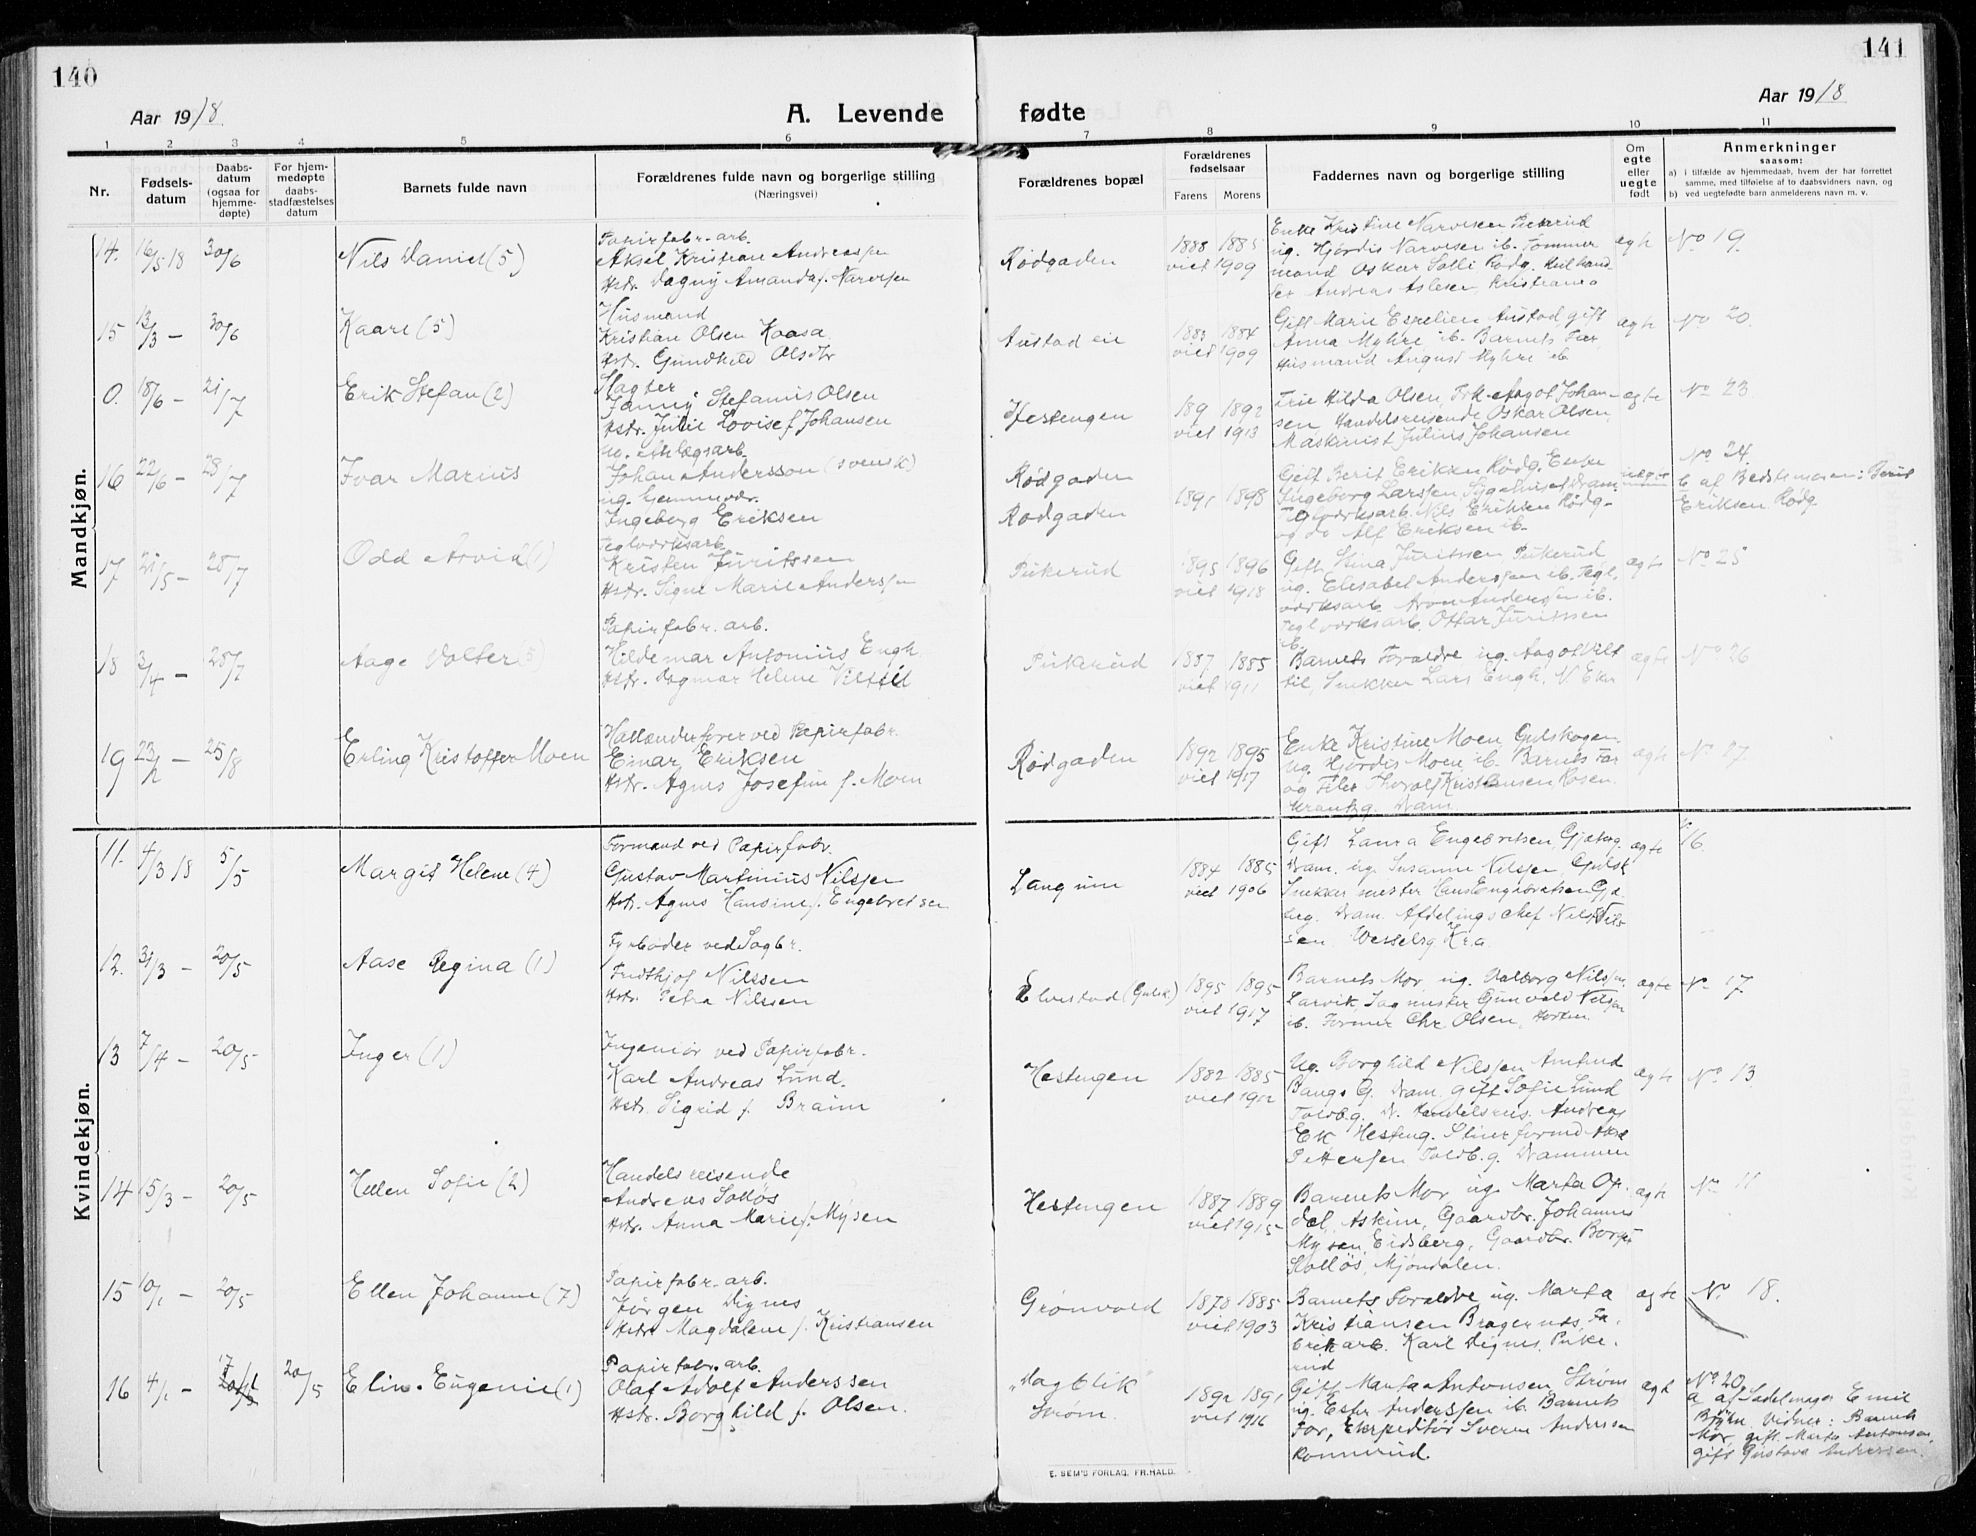 140
Aar 1918
A. Levende
1 2 3 4 5 6
Nr.
Fødsels-
datum
Daabs-
datum
(ogsaa for
hjemme-
døpte)
For hjem-
medøpte
daabs-
stadfæstelses
datum
Barnets fulde navn
Forældrenes fulde navn og borgerlige stilling
(Næringsvei)
Mandkjøn.
14. 16/5 18 30/6 Nils Daniel (5)
Papirfabr. arb.
Aksel Kristian Andreassen
Hstr. Dagny Amanda f. Narvesen
15 13/3 – 30/6 Kaare (5)
Husmand
Kristian Olsen Kaasa
Hstr. Gundhild Olsdtr
0. 18/6 – 21/7 Erik Stefan (2)
Slagter
Fanny Stefanus Olsen
Hstr. Julie Lovise f Johansen
16 22/6 – 28/7 Ivar Marius
Johan Andersson (svensk)
ug.
Ingeborg Eriksen
17 21/5 – 28/7 Odd Arvid (1)
Teglværksarb.
Kristen Juritssen
Hstr. Signe Marie Anderssen
18 3/4 – 28/7 Aage Volter (5)
Papirfabr. arb.
Hildemar Antonius Engh
Hstr. Dagmar Helene Viltil
19 23/2 – 25/8 Erling Kristoffer Moen
Hollænderfører ved Papirfabr.
Einar Eriksen
Hstr. Agnes Josefine f. Moen
Kvindekjøn.
11. 4/3 18 5/5 Margit Helene (4)
Formand ved Papirfabr.
Gustav Martinius Nilssen
Hstr. Agnes Hansine f. Engebretsen
12. 31/3 – 20/5 Aase Regina (1)
Fyrbøder ved Sagbr.
Fridthjof Nilssen
Hstr. Petra Nilssen
13 7/4 – 20/5 Inger (1)
Ingeniør ved Papirfabr.
Karl Andreas Lund.
Hstr. Sigrid f. Braim
14 15/3 – 20/5 Hellen Sofie (2)
Handelsreisende
Andreas Solløs
Hstr. Anna Marie f. Mysen
15 10/1 – 20/5 Ellen Johanne (7)
Papirfabr. arb.
Jørgen Dignes
Hstr. Magdalene f. Kristiansen
16 4/1 – 20/5 Elin Eugenie (1)
Papirfabr. arb.
Olaf Adolf Anderssen
Hstr. Borghild f. Olsen.
141
Aar 1918
fødte
7 8 9 10 11
Forældrenes bopæl
Forældrenes
fødselsaar
Farens Morens
Faddernes navn og borgerlige stilling
Om
egte
eller
uegte
født
Anmerkninger
saasom:
a) i tilfælde av hjemmedaab, hvem der har forrettet
samme, med tilføielse af to daabsvidners navn, og
b) ved uegtefødte barn anmelderens navn m. v.
Rødgaden
1888 1885
viet 1909
Enke Kristine Narvesen Pukerud
ug. Hjørdis Narvesen ib. Tømmer
mand Oskar Solli Rødg. Hvilhand-
ler Andreas Aslesen, Kristiania
ægte No 19.
Austad eie
1883 1884
viet 1909
Gift Marie Espelien Austad gift
Anna Myhre ib. Barnets Far
Husmand August Myhre ib.
ægte No 20.
Hestengen
189 1892
viet 1913
Frie Hilda Olsen, Frk. Aagot Johan-
sen Handelsreisende Oskar Olsen,
Maskinist Julius Johansen
ægte No 23
Rødgaden
Rødgaden
1891 1898
Gift Berit Eriksen Rødg. Enke
Ingeborg Larssen, Sygehuset Dram.
Teglværksarb. Nils Eriksen Rødg.
og do Alf Eriksen ib.
uægte
No 24
b af Bedstemoren: Berit
Eriksen Rødg.
Pukerud
1895 1896
viet 1918
Gift Stina Juritssen Pukerud
ug. Elisabet Anderssen ib. Tegl-
værksarb. Aron Anderssen ib.
Teglværksarb. Ottar Juritssen
ib.
ægte No 25
Pukerud
1887 1885
viet 1911
Barnets Forældre ug. Aagot Vilt
til, Snekker Lars Engh, N Eker
ægte No 26
Rødgaden
1892 1895
viet 1917
Enke Kristine Moen Gulskogen
ug. Hjørdis Moen ib. Barnets Far
og Filer Thorolf Kristensen Rosen
krantzg. Dram.
ægte No 27
Langum
1884 1885
viet 1906
Gift Laura Engebretsen, Gjæterg.
Dram. ug. Susanne Nilssen, Gulsk
Snekkermester Hans Engebretsen Gjæ
terg. Dram. Afdelingschef Nils Nils-
sen. Wesselsg. Kr.a.
ægte 16.
Elvestad (Gulsk.)
1895 1895
viet 1917
Barnets Mor, ug. Valborg Nilssen
Larvik, Sagmester Gunvald Nilssen
ib. Former Chr. Olsen, Horten.
ægte No 17
Hestengen
1882 1885
viet 1912
Ug. Borghild Nilssen Amtmd
Bangs G. Dram. gift Sofie Lund
Toldb.g. D. Handelsreis. Andreas
Ek Hesteng.
Pettersen Toldb.g. Drammen
ægte No 13
Hestengen
1887 1889
viet 1915
Barnets Mor ug. Marta Op-
dal, Askim, Gaardbr. Johannes
Mysen Eidsberg, Gaardbr. Borger
Solløs, Mjøndalen.
ægte No 11
Grønvold
1878 1885
viet 1903
Barnets Forældre ug. Marta
Kristiansen Bragernæs, Fa-
brikarb. Karl Dignes, Puke-
rud
ægte No 18.
"Dagblik"
Strøm.
1892 1891
viet 1916
Gift Marta Antonsen Strøm
ug. Ester Anderssen ib. Barnets
Far, Ekspeditør Sverre Anderssen
Ronnerud.
ægte
No 20
a af Sadelmager Emil
Bjørn. Vidner: Barnets
Mor, gift Marta Antonsen,
gift Gustava Anderssen.
E. SEM'S FORLAG, FR.HALD.